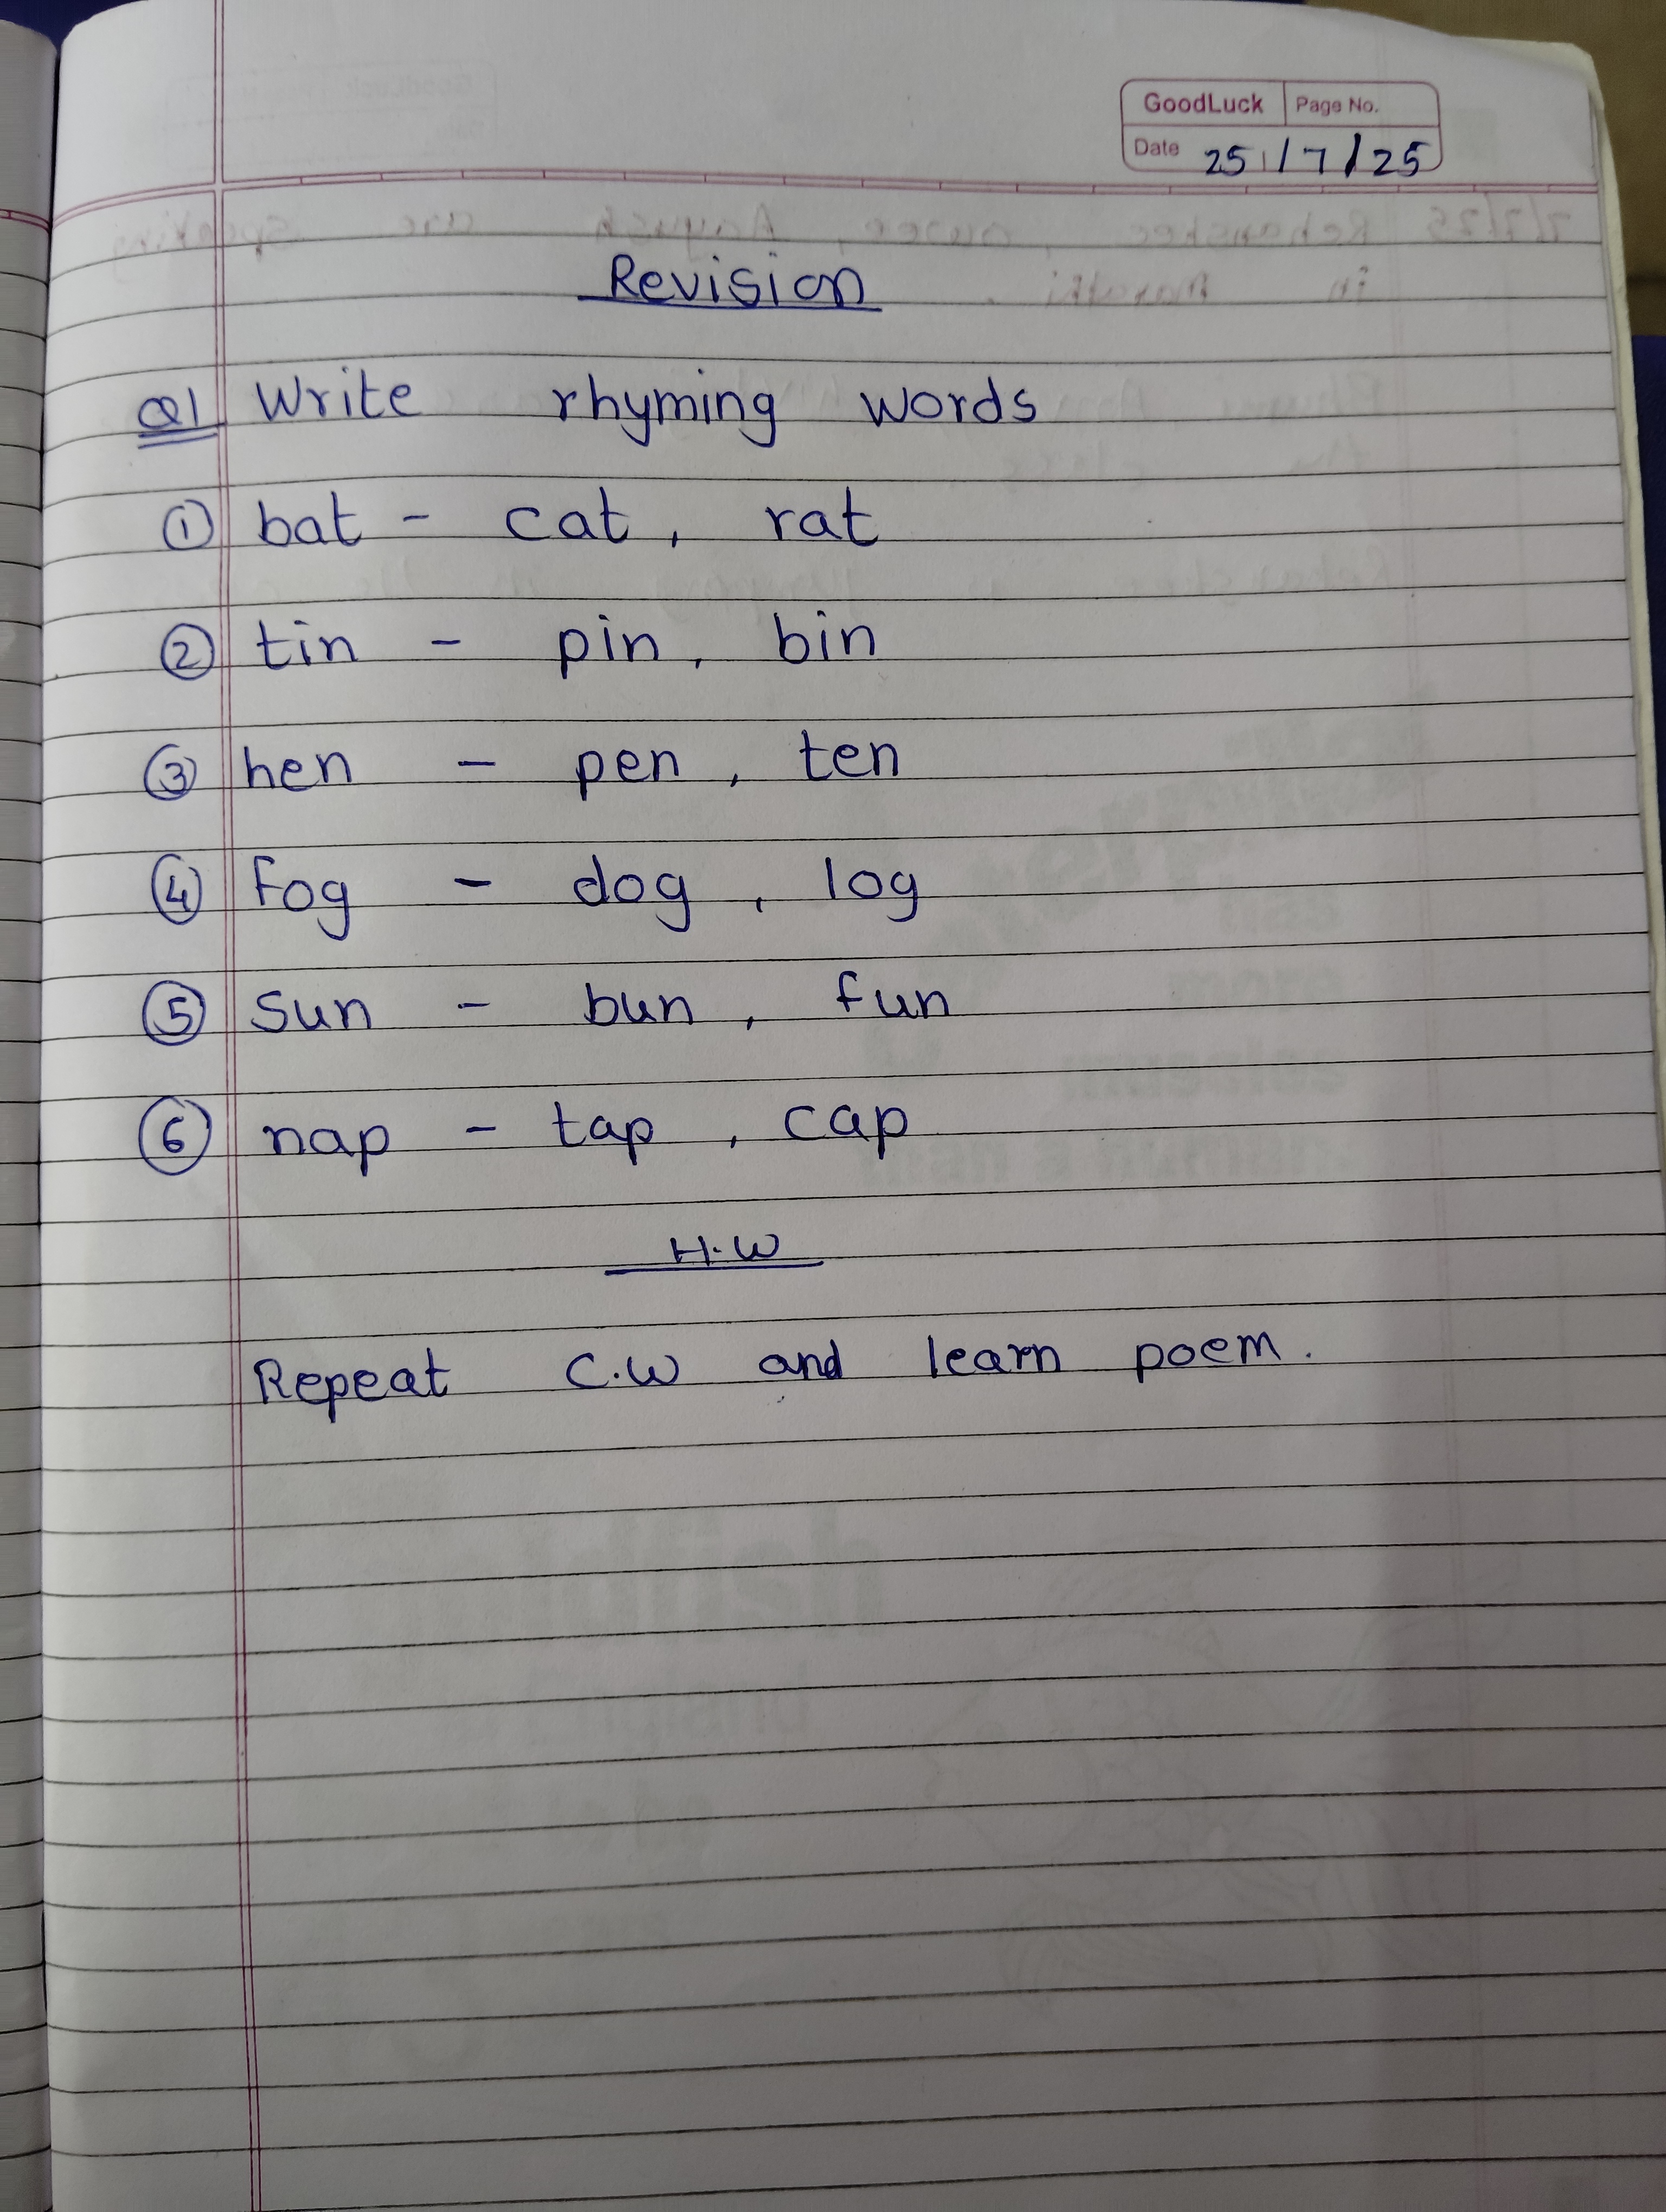 GoodLuck Page No.
Date 25/7/25
Revision
Q1 Write rhyming words
① bat - cat, rat
② tin - pin, bin
③ hen - pen, ten
④ Fog - dog, log
⑤ Sun - bun, fun
⑥ nap - tap, cap
H.W
Repeat C.W and learn poem.